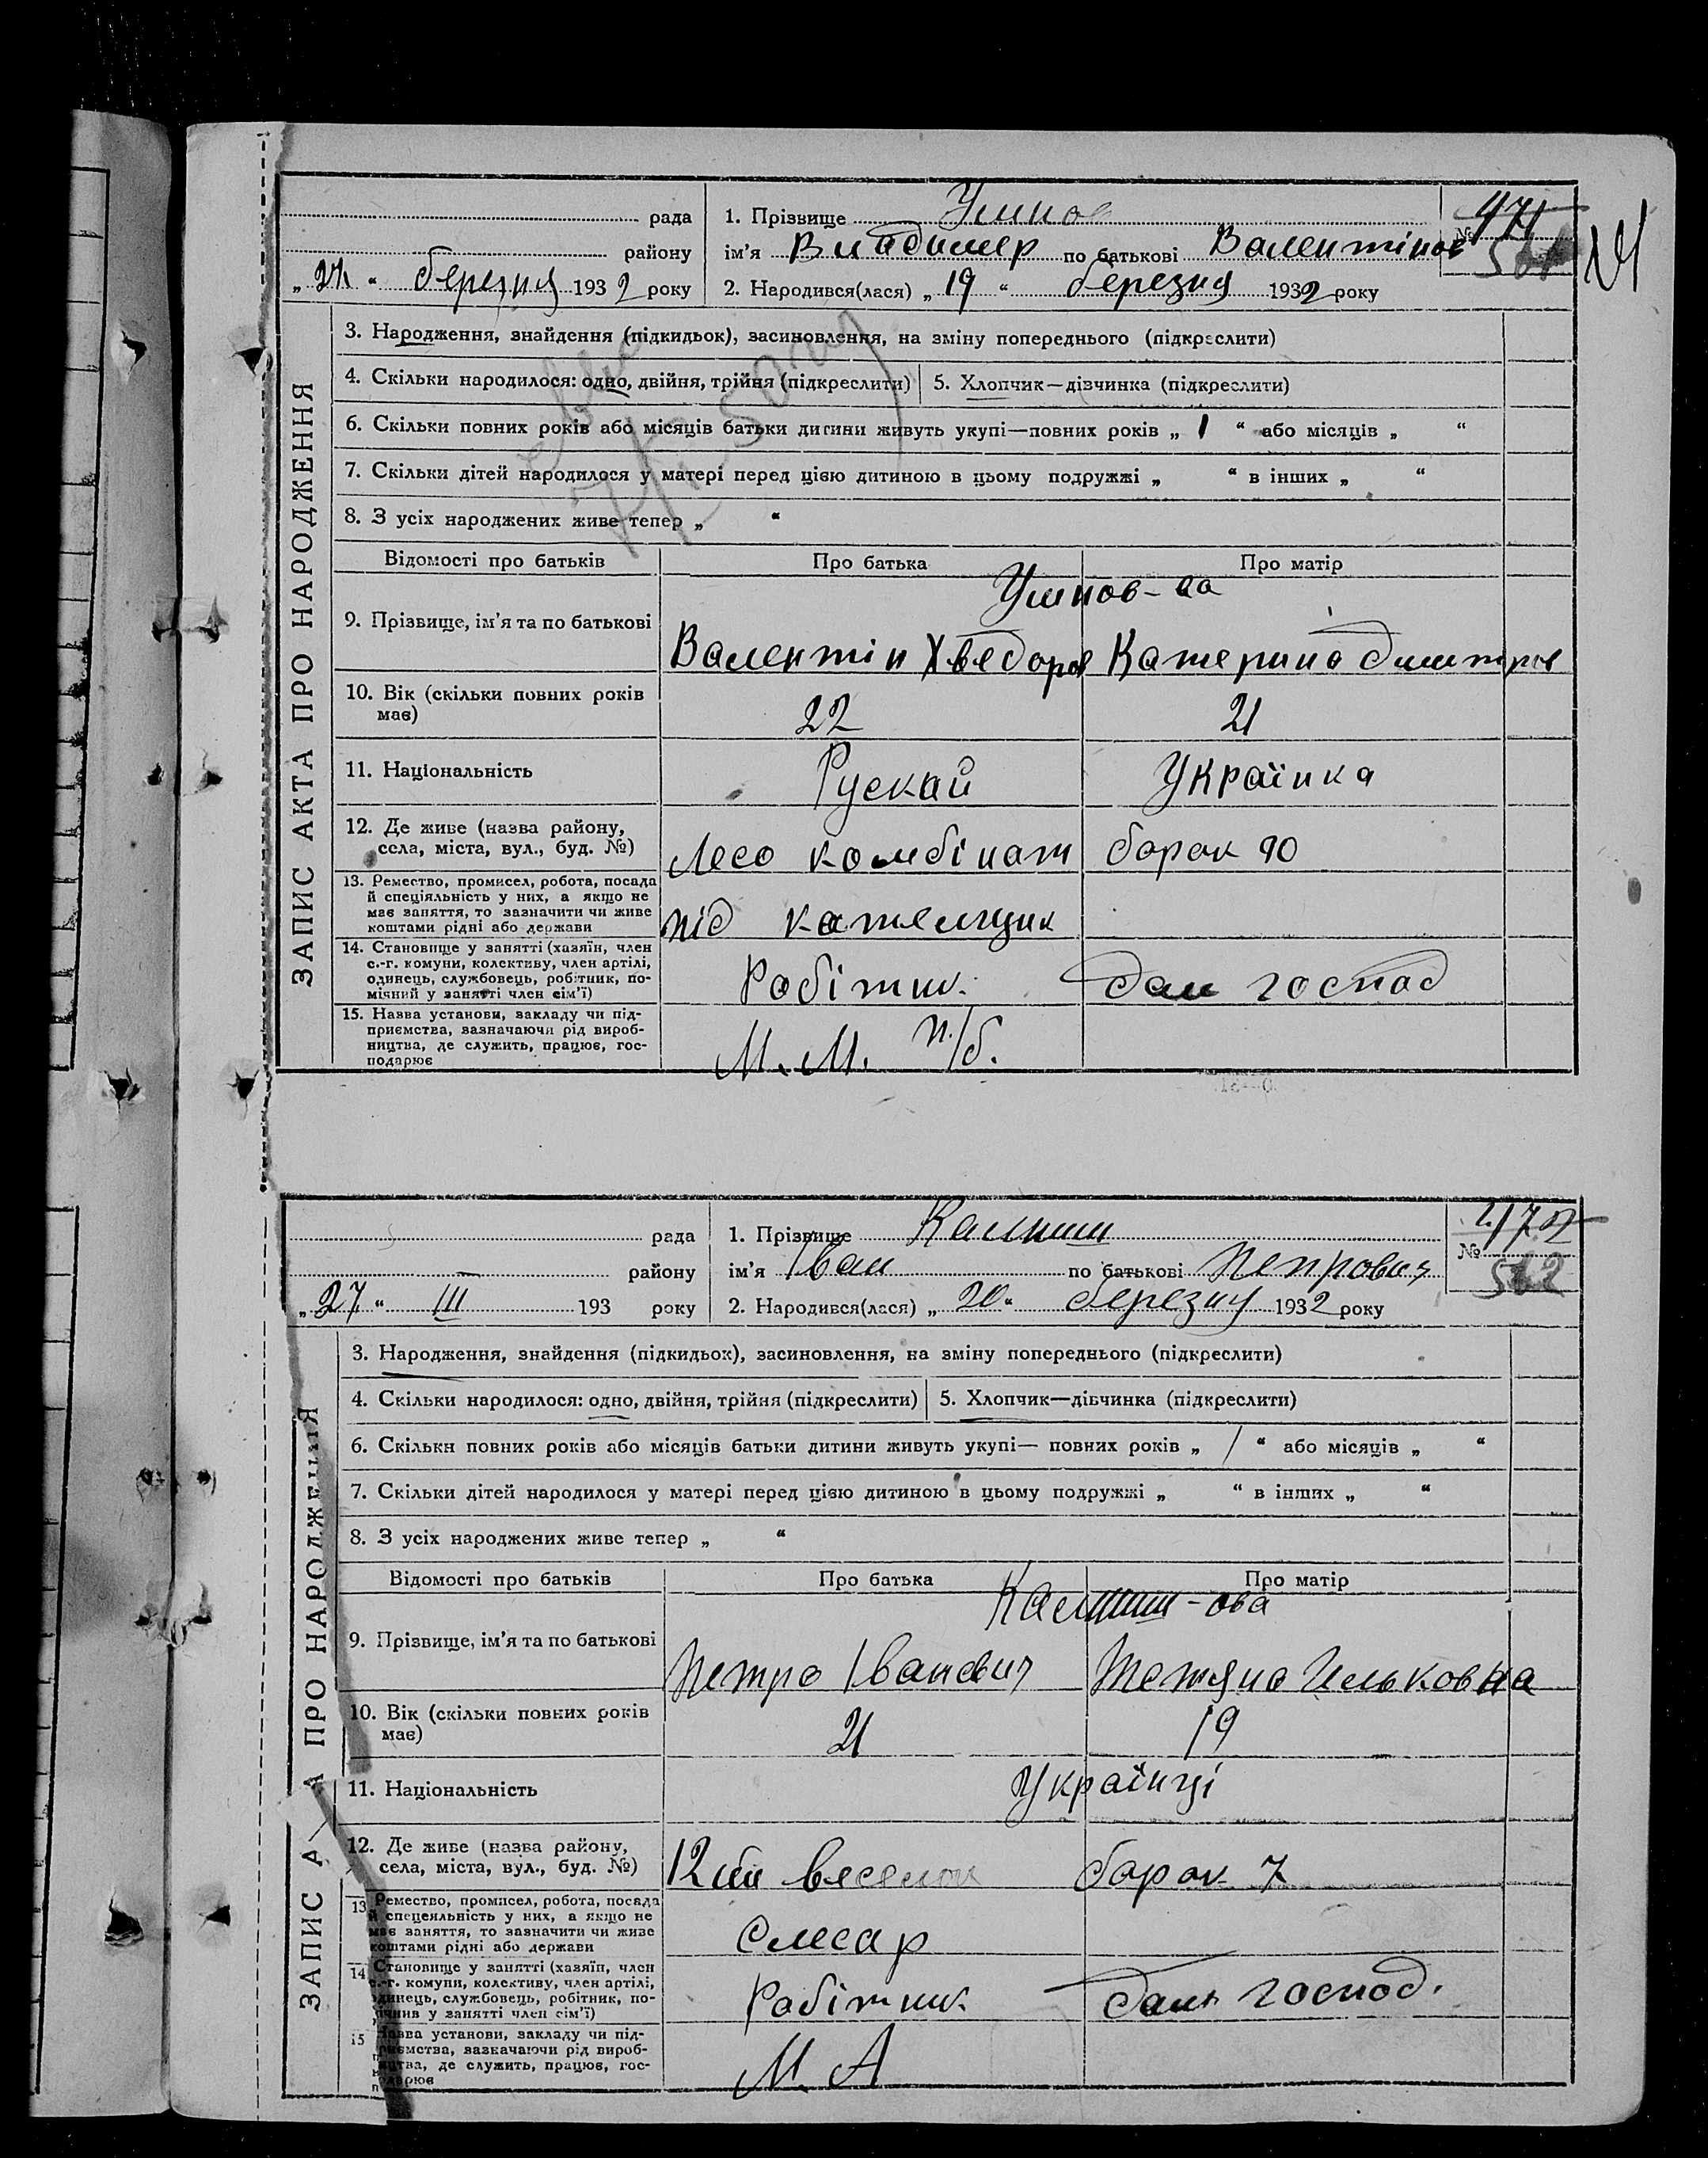 рада
району
„ 27 “ березня 1932 року
1. Прізвище Умнов
ім'я Владимер по батькові Валентінов
2. Народився(лася) „ 19 “ березня 1932 року
№ 471
ЗАПИС АКТА ПРО НАРОДЖЕННЯ
3. Народження, знайдення (підкидьок), засиновлення, на зміну попереднього (підкреслити)
4. Скільки народилося: одно, двійня, трійня (підкреслити)
5. Хлопчик—дівчинка (підкреслити)
6. Скільки повних років або місяців батьки дитини живуть укупі—повних років „ 1 “ або місяців „ “
7. Скільки дітей народилося у матері перед цією дитиною в цьому подружжі „ “ в інших „ “
8. З усіх народжених живе тепер „ “
Відомості про батьків
Про батька
Про матір
Умнов-ва
9. Прізвище, ім'я та по батькові
Валентін Хведоров
Катерина Дмитров
10. Вік (скільки повних років
має)
22
21
11. Національність
Рускай
Українка
12. Де живе (назва району,
села, міста, вул., буд. №)
Лесо комбінат
барак 90
13. Ремество, промисел, робота, посада
й спеціяльність у них, а якщо не
має заняття, то зазначити чи живе
коштами рідні або держави
під кательщик
14. Становище у занятті (хазяїн, член
с.-г. комуни, колективу, член артілі,
одинець, службовець, робітник, по-
мічний у занятті член сім'ї)
Робітник.
дом господ
15. Назва установи, закладу чи під-
приємства, зазначаючи рід вироб-
ництва, де служить, працює, гос-
подарює
М. М. п/б.
рада
району
„ 27 “ III 193 року
1. Прізвище Калниш
ім'я Іван по батькові Петрович
2. Народився(лася) „ 20 “ березня 1932 року
№ 472
562
ЗАПИС А А ПРО НАРОДЖЕННЯ
3. Народження, знайдення (підкидьок), засиновлення, на зміну попереднього (підкреслити)
4. Скільки народилося: одно, двійня, трійня (підкреслити)
5. Хлопчик—дівчинка (підкреслити)
6. Скільки повних років або місяців батьки дитини живуть укупі— повних років „ 1 “ або місяців „ “
7. Скільки дітей народилося у матері перед цією дитиною в цьому подружжі „ “ в інших „ “
8. З усіх народжених живе тепер „ “
Відомості про батьків
Про батька
Про матір
Калниш-ова
9. Прізвище, ім'я та по батькові
Петро Іванович
Тетяна Ильковна
10. Вік (скільки повних років
має)
21
19
11. Національність
Українці
12. Де живе (назва району,
села, міста, вул., буд. №)
12ий веселок
барак 7
13 Ремество, промисел, робота, посада
й спецеяльність у них, а якщо не
має заняття, то зазначити чи живе
коштами рідні або держави
Слесар
14 Становище у занятті (хазяїн, член
с.-г. комуни, колективу, член артілі,
одинець, службовець, робітник, по-
мічнив у занятті член сім'ї)
Робітник.
дом господ.
15 Назва установи, закладу чи під-
приємства, вазкачаючи рід вироб-
ництва, де служить, працює, гос-
подарює
М. А